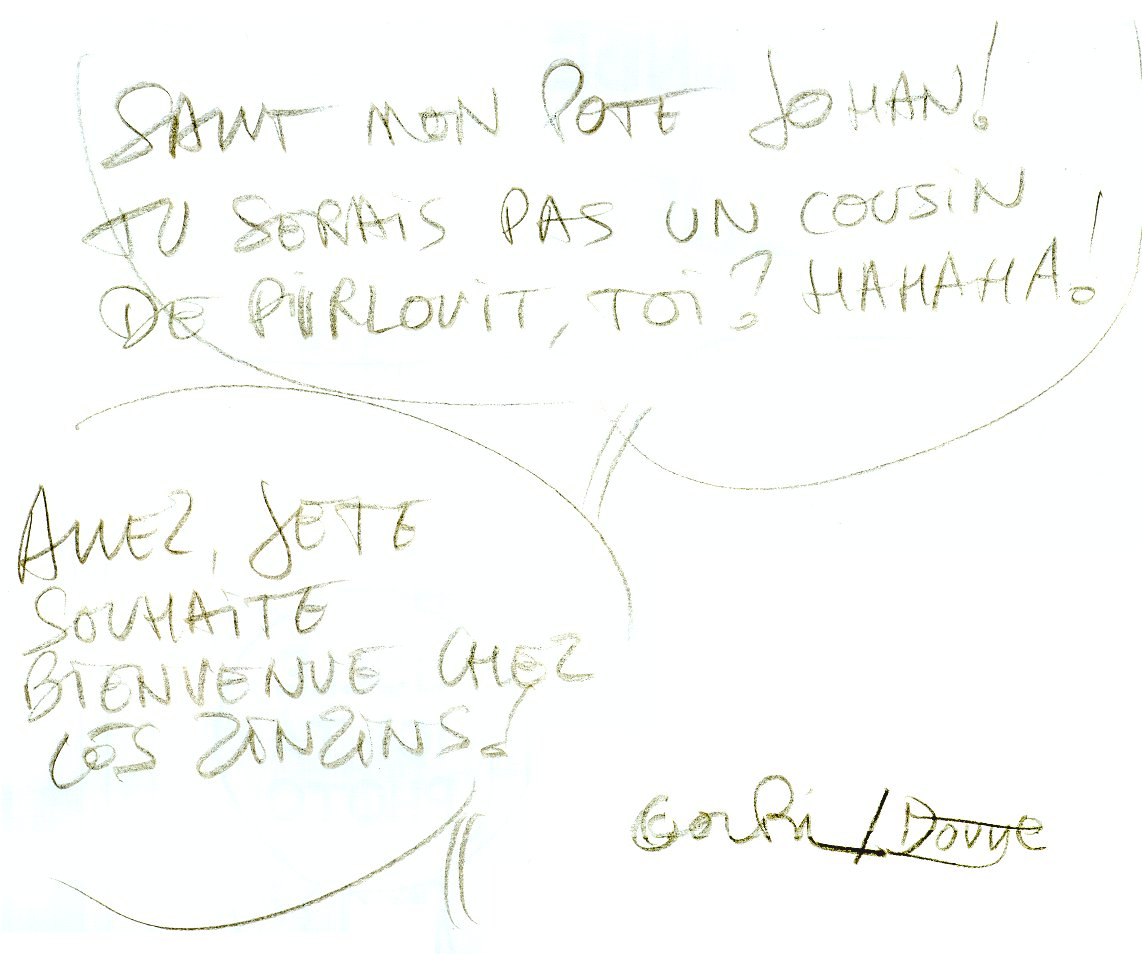 SALUT MON POTE JOHAN!
TU SERAIS PAS UN COUSIN
DE PIRLOUIT, TOI? HAHAHA!
ALLEZ, JE TE
SOUHAITE
BIENVENUE CHEZ
LES ZINZINS!